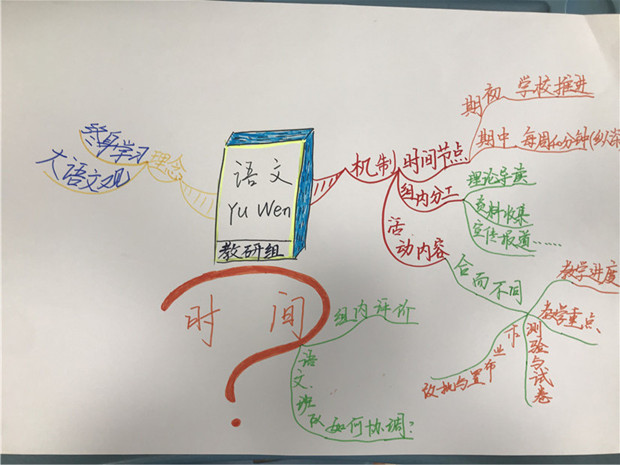 终身学习
大语文观
理念
语文
Yu Wen
教研组
机制
时间节点
期初 学校推进
期中 每周40分钟(纵深
组内分工
理论导读
资料收集
宣传报道……
活动内容
合而不同
教学进度
教学重点
测验与试卷
作业
批改与置布
时间
?
组内评价
语文.班队
如何协调?